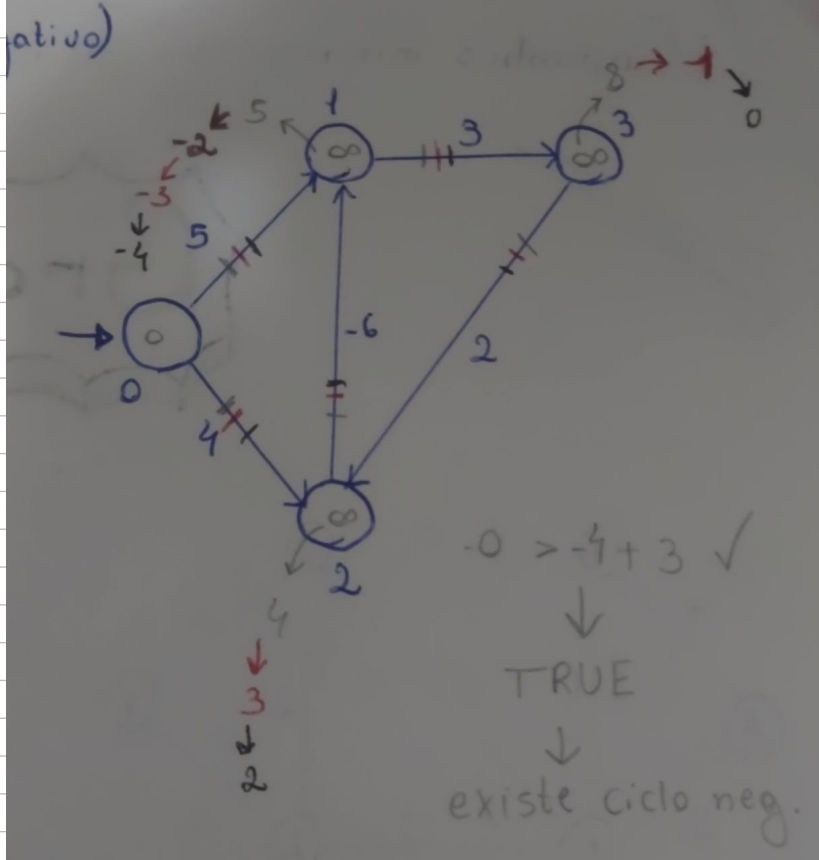 gativo)
8 → -1
0
1
5
-2
-3
-4
∞
3
∞
3
5
0
0
-6
2
4
∞
2
4
3
2
0 > -4 + 3 ✓
TRUE
existe ciclo neg.